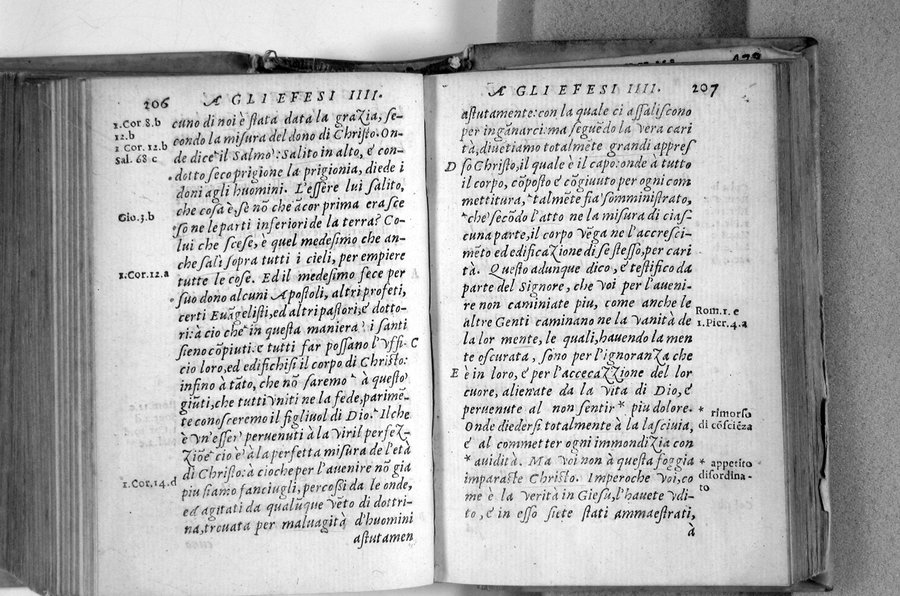 206 A GLI EFESI IIII.
1.Cor.8.b
12.b
1 Cor. 12.b
Sal. 68 c
cuno di noi è ſtata data la grazia, ſe-
condo la miſura del dono di Chriſto. On-
de dice il Salmo: Salito in alto, e con-
dotto ſeco prigione la prigionia, diede i
doni agli huomini. L'eſſere lui ſalito,
Gio.3.b
che coſa è, ſe nō che ācor prima era ſce
ſo ne le parti inferiori de la terra? Co-
lui che ſceſe, è quel medeſimo che an-
che ſalì ſopra tutti i cieli, per empiere
1.Cor.12.a
tutte le coſe. Ed il medeſimo fece per
ſuo dono alcuni Apoſtoli, altri profeti,
certi Euāgeliſti, ed altri paſtori, e dotto-
ri: à cio che in queſta maniera i ſanti
ſieno cōpiuti. e tutti far poſſano l'vffi- C
cio loro, ed edifichiſi il corpo di Chriſto:
infino à tāto, che nō ſaremo à queſto
giūti, che tutti vniti ne la fede, parimē-
te conoſceremo il figliuol di Dio. Il che
è vn'eſſer peruenuti à la viril perfez-
zione cio è à la perfetta miſura de l'età
di Chriſto: à cioche per l'auenire nō gia
1.Cor.14.d
piu ſiamo fanciugli, percoſſi da le onde,
ed agitati da qualūque vēto di dottri-
na, trouata per maluagità d'huomini
aſtutamen
A GLI EFESI IIII. 207
aſtutamente: con la quale ci aſſaliſcono
per ingānarci: ma ſeguēdo la vera cari
tà, diuētiamo totalmēte grandi appreſ
D ſo Chriſto, il quale è il capo: onde à tutto
il corpo, cōpoſto e cōgiuuto per ogni com
mettitura, talmēte ſia ſomminiſtrato,
che ſecōdo l'atto ne la miſura di ciaſ-
cuna parte, il corpo vēga ne l'accreſci-
mēto ed edificazione di ſe ſteſſo, per cari
tà. Queſto adunque dico, e teſtifico da
parte del Signore, che voi per l'aueni-
re non caminiate piu, come anche le
Rom.1.e
1.Pier.4.a
altre Genti caminano ne la vanità de
la lor mente, le quali, hauendo la men
te oſcurata, ſono per l'ignoranza che
E è in loro, e per l'accecazzione del lor
cuore, alienate da la vita di Dio, e
peruenute al non ſentir * piu dolore.
* rimorſo
di cōſciēza
Onde diederſi totalmente à la laſciuia,
e al commetter ogni immondizia con
* auidità. Ma voi non à queſta foggia
* appetito
diſordina-
to
imparaſte Chriſto. Imperoche voi, co
me è la verità in Gieſu, l'hauete vdi-
to, e in eſſo ſiete ſtati ammaeſtrati,
à